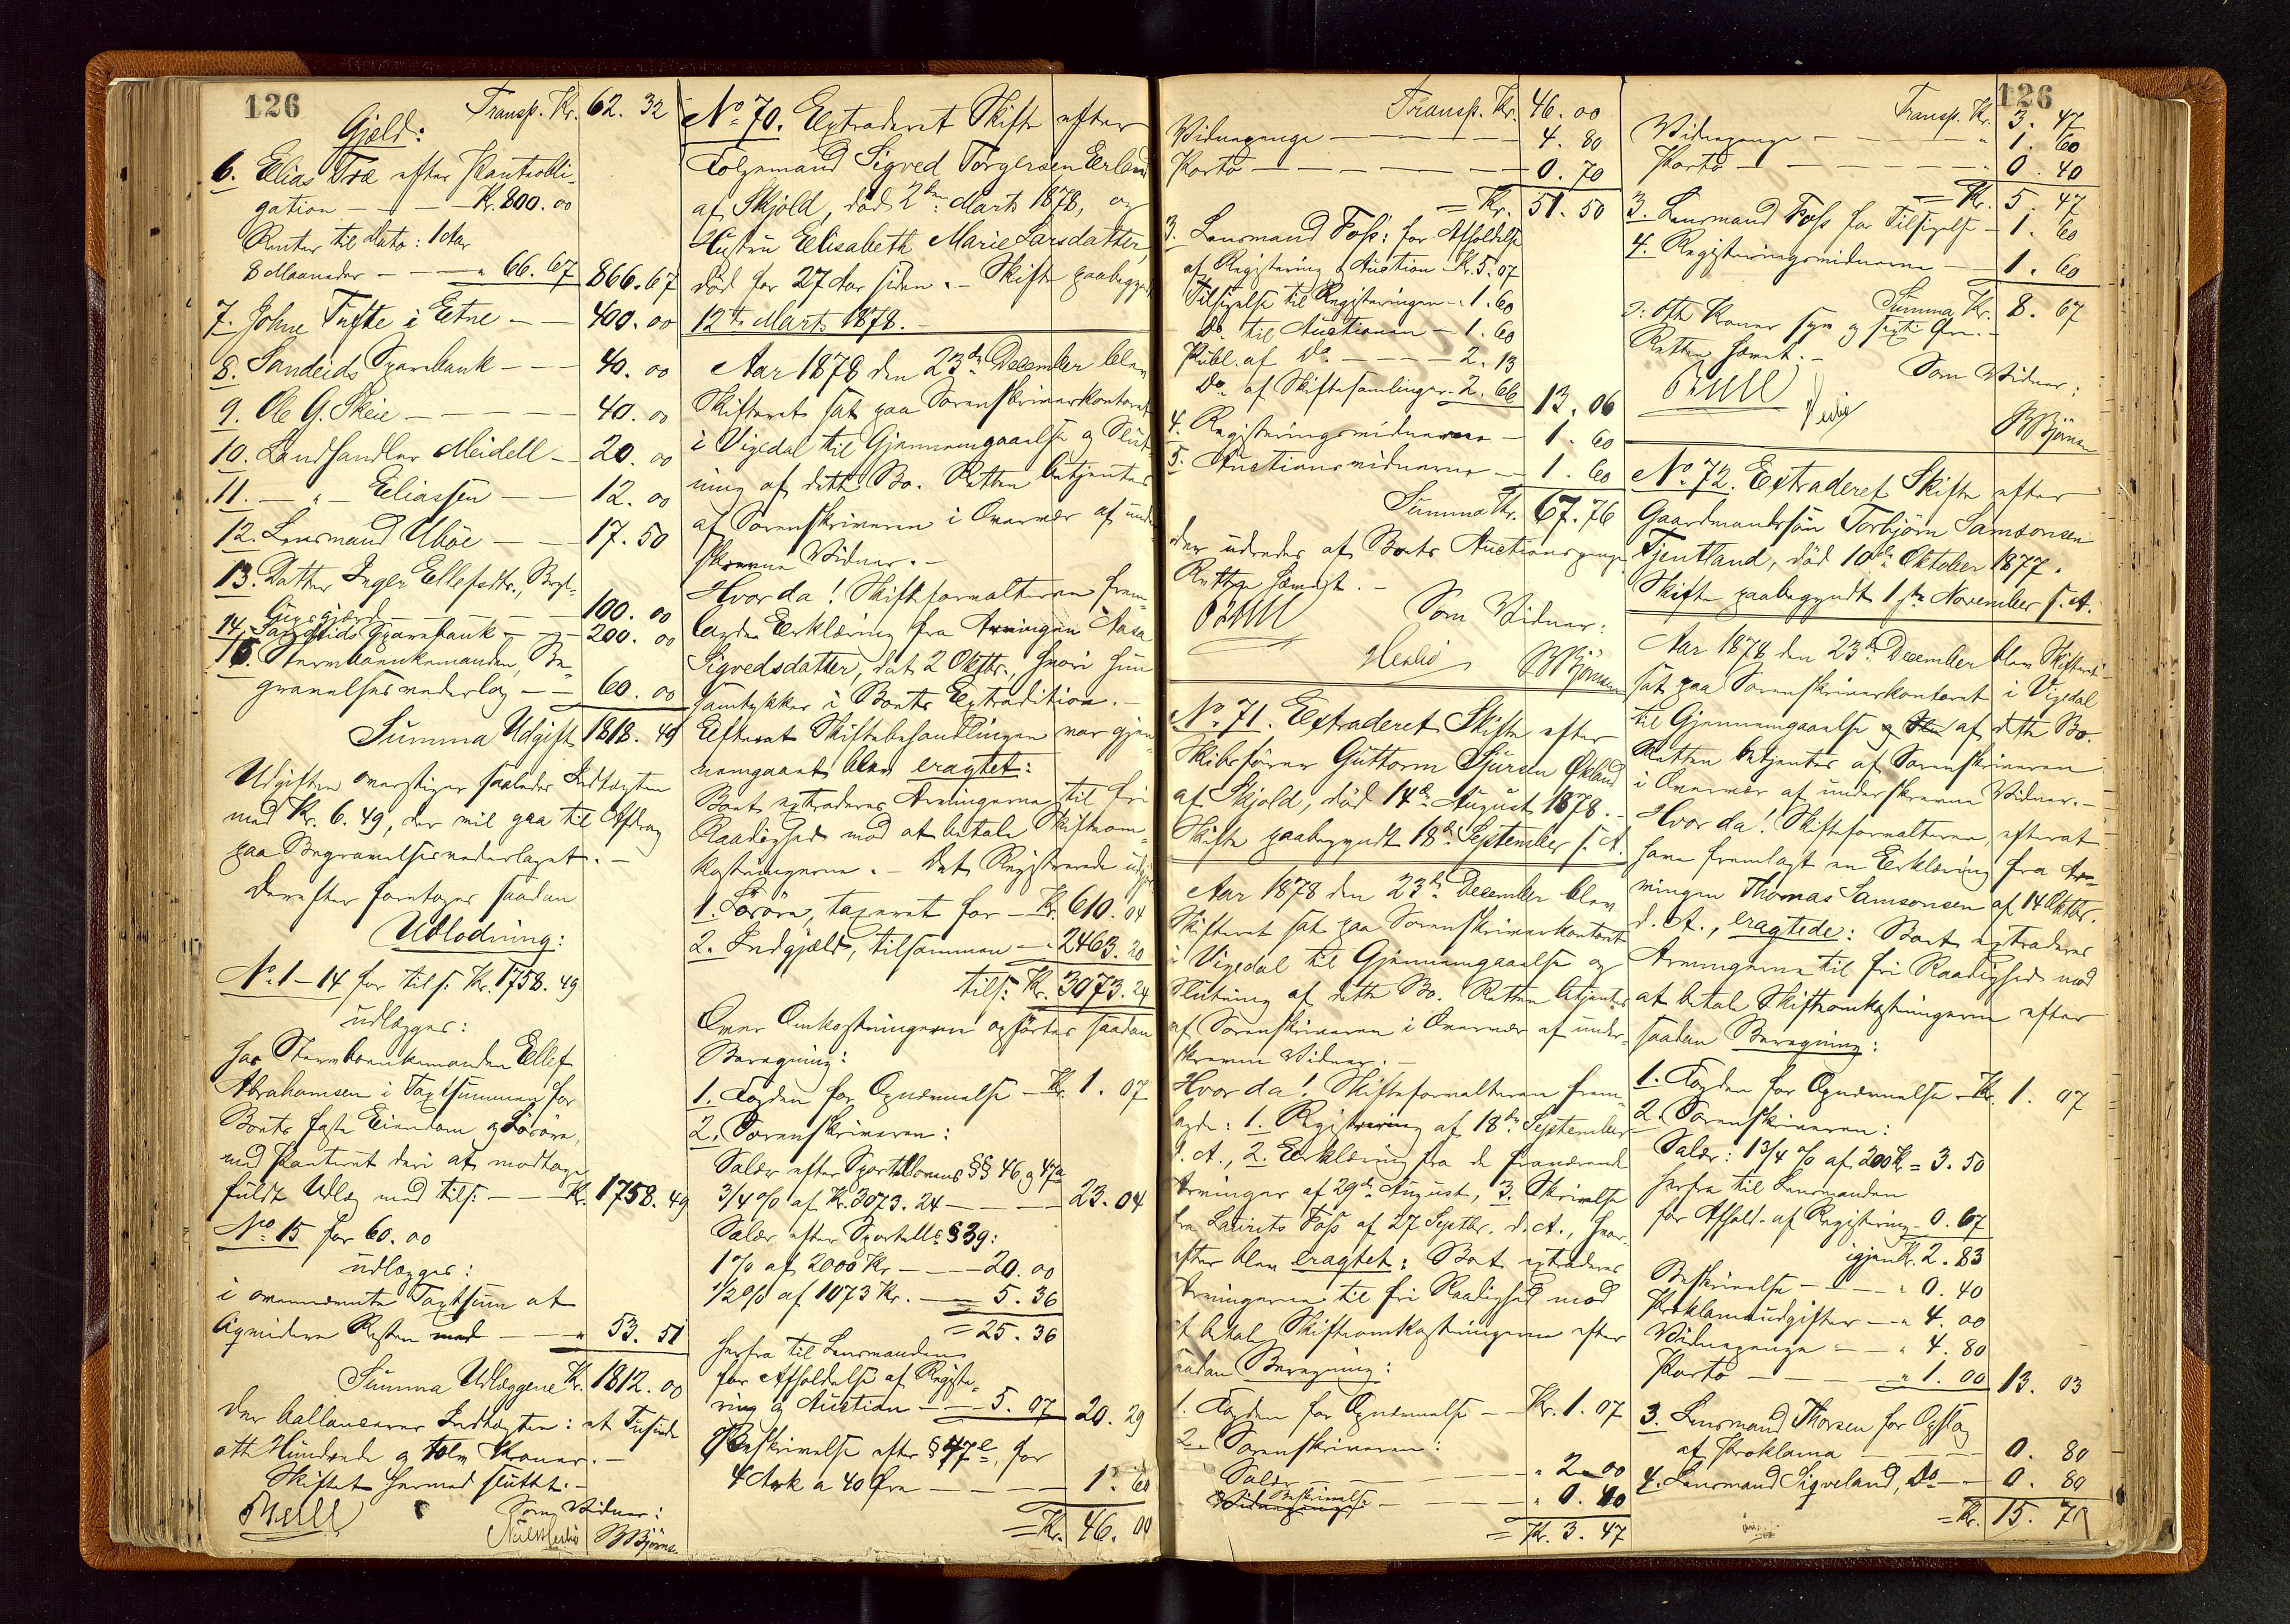 126
Transp. Kr. 62. 32
Gjeld:
6. Elias Træ efter Pantobli-
gation — — — Kr. 800.00
Renter til dato: 1 Aar
8 Maaneder — — — " 66.67 866.67
7. Johne Tufte i Etne — — 400.00
8. Sandeids Sparebank — — 40.00
9. Ole G. Skeie — — — 40.00
10. Landhandler Meidell — 20.00
11. — " — Eliassen — — 12.00
12. Lensmand Ubøe — — 17.50
13. Datter Inger Ellefsdtr.,
— — 100.00
14. Sandeids Sparebank — — 200.00
15. Stervboenkemanden, Be-
gravelsesvederlag — — 60.00
Summa Udgift 1818.49
Udgiften overstiger saaledes Indtægten
med Kr. 6.49, der vil gaa til Afdrag
paa Begravelsesvederlaget. —
Derefter foretoges saadan
Udlodning:
No. 1–14 for tils: Kr. 1758.49
udlægges:
hos Stervboenkemanden Ellef
Abrahamsen i Taxtsummen for
Boets faste Eiendom og Løsøre,
med Panteret deri at modtage
fuldt Udlæg med tils: — — Kr. 1758.49
No. 15 for 60.00
udlægges:
i ovennævnte Taxtsum at
liqvidere Resten med — — " 53.51
Summa Udlæggene Kr. 1812.00
der ballancerer Indtægten: et Tusinde
ott Hundrede og tolv Kroner. —
Skiftet hermed sluttet. —
Som Vidner:
BBjörnsen
No. 70. Extraderet Skifte efter
Folgemand Sigved Torgersen Erland
af Skjold, død 2den Marts 1878, og
Hustru Elisabeth Marie Larsdatter,
død for 27 Aar siden. — Skifte paabegyndt
12te Marts 1878. —
Aar 1878 den 23de December blev
Skifteret sat paa Sorenskriverkontoret
i Vigedal til Gjennemgaaelse og Slut-
ning af dette Bo. Retten betjentes
af Sorenskriveren i Overvær af under-
skrevne Vidner. —
Hvor da! Skifteforvalteren frem-
lagde Erklæring fra Arvingen Aasa
Sigvedsdatter, dat. 2 Oktbr., hvori hun
samtykker i Boets Extradition. —
Efterat Skiftebehandlingen var gjen-
nemgaaet blev eragtet:
Boet extraderes Arvingerne til fri
Raadighed mod at betale Skifteom-
kostningerne. — Det Registrerede udgjør
1. Løsøre, taxeret for — Kr. 610.04
2. Indgjæld, tilsammen — " 2463.20
tils: Kr. 3073.24
Over Omkostningerne opførtes saadan
Beregning:
1. Fogden for Opnævnelse — Kr. 1.07
2. Sorenskriveren:
Salær efter Sportellovens §§ 46 og 47a
3/4 % af Kr. 3073.24 — — — 23.04
Salær efter Sportell. § 39:
1 % af 2000 Kr — — — 20.00
1/2 % af 1073 Kr. — — 5.36
= 25.36
herfra til Lensmanden
for Afholdelse af Registe-
ring og Auction — — 5.07 20.29
Beskrivelse efter § 47e, for
4 Ark a 40 Øre — — — — 1.60
= Kr. 46.00
126
Transp. Kr. 46.00
Vidnepenge — — — 4.80
Porto — — — — 0.70
= Kr. 51.50
3. Lensmand Foss: for Afholdelse
af Registering & Auction Kr. 5.07
Tilsigelse til Registeringen " 1.60
Do til Auctionen — 1.60
Publ. af Do — — — 2.13
Do af Skiftesamlinger 2.66 13.06
4. Registeringsvidnerne — 1.60
5. Auctionsvidnerne — 1.60
Summa Kr. 67.76
der udredes af Boets Auctionspenge
Retten hævet. —
Som Vidner:
BBjörnsen
No. 71. Extraderet Skifte efter
Skibsfører Guttorm Sjursen Økland
af Skjold, død 14de August 1878. —
Skifte paabegyndt 18de September s. A.
Aar 1878 den 23de December blev
Skifteret sat paa Sorenskriverkontoret
i Vigedal til Gjennemgaaelse og
Slutning af dette Bo. Retten betjentes
af Sorenskriveren i Overvær af under-
skrevne Vidner. —
Hvor da! Skifteforvalteren frem-
lagde: 1. Registrering af 18de September
d. A., 2. Erklæring fra de fraværende
Arvinger af 29de August, 3. Skrivelse
fra Laurits Foss af 27 Septbr. d. A., hvor-
efter blev eragtet: Boet extraderes
Arvingerne til fri Raadighed mod
at betale Skifteomkostningerne efter
saadan Beregning:
1. Fogden for Opnævnelse — Kr. 1.07
2. Sorenskriveren:
Salær — — — — " 2.00
Beskrivelse — — — " 0.40
= Kr. 3.47
Transp. Kr. 3.47
Vidnepenge — — " 1.60
Porto — — — — 0.40
= Kr. 5.47
3. Lensmand Foss for Tilsigelse — 1.60
4. Registeringsvidnerne — 1.60
Summa Kr. 8.67
ɔ: otte Kroner syv og sexti Øre. —
Retten hævet. —
Som Vidner:
BBjörnsen
No. 72. Extraderet Skifte efter
Gaardmandssøn Torbjørn Samsonsen
Fjentland, død 10de Oktober 1877.
Skifte paabegyndt 1ste November s. A.
Aar 1878 den 23de December blev Skifteret
sat paa Sorenskriverkontoret i Vigedal
til Gjennemgaaelse af dette Bo.
Retten betjentes af Sorenskriveren
i Overvær af underskrevne Vidner. —
Hvor da! Skifteforvalteren, efterat
have fremlagt en Erklæring fra Ar-
vingen Thomas Samsonsen af 14 Oktbr.
d. A., eragtede: Boet extraderes
Arvingerne til fri Raadighed mod
at betale Skifteomkostningerne efter
saadan Beregning:
1. Fogden for Opnævnelse Kr. 1.07
2. Sorenskriveren:
Salær: 1 3/4 % af 200 Kr = 3.50
herfra til Lensmanden
for Afhold. af Registering 0.67
igjen Kr. 2.83
Beskrivelse — — — " 0.40
Proklamaudgifter — " 4.00
Vidnepenge — — " 4.80
Porto — — — " 1.00 13.03
3. Lensmand Thorsen for Opslag
af Proklama — — — 0.80
4. Lensmand Sigveland, Do — 0.80
= Kr. 15.70